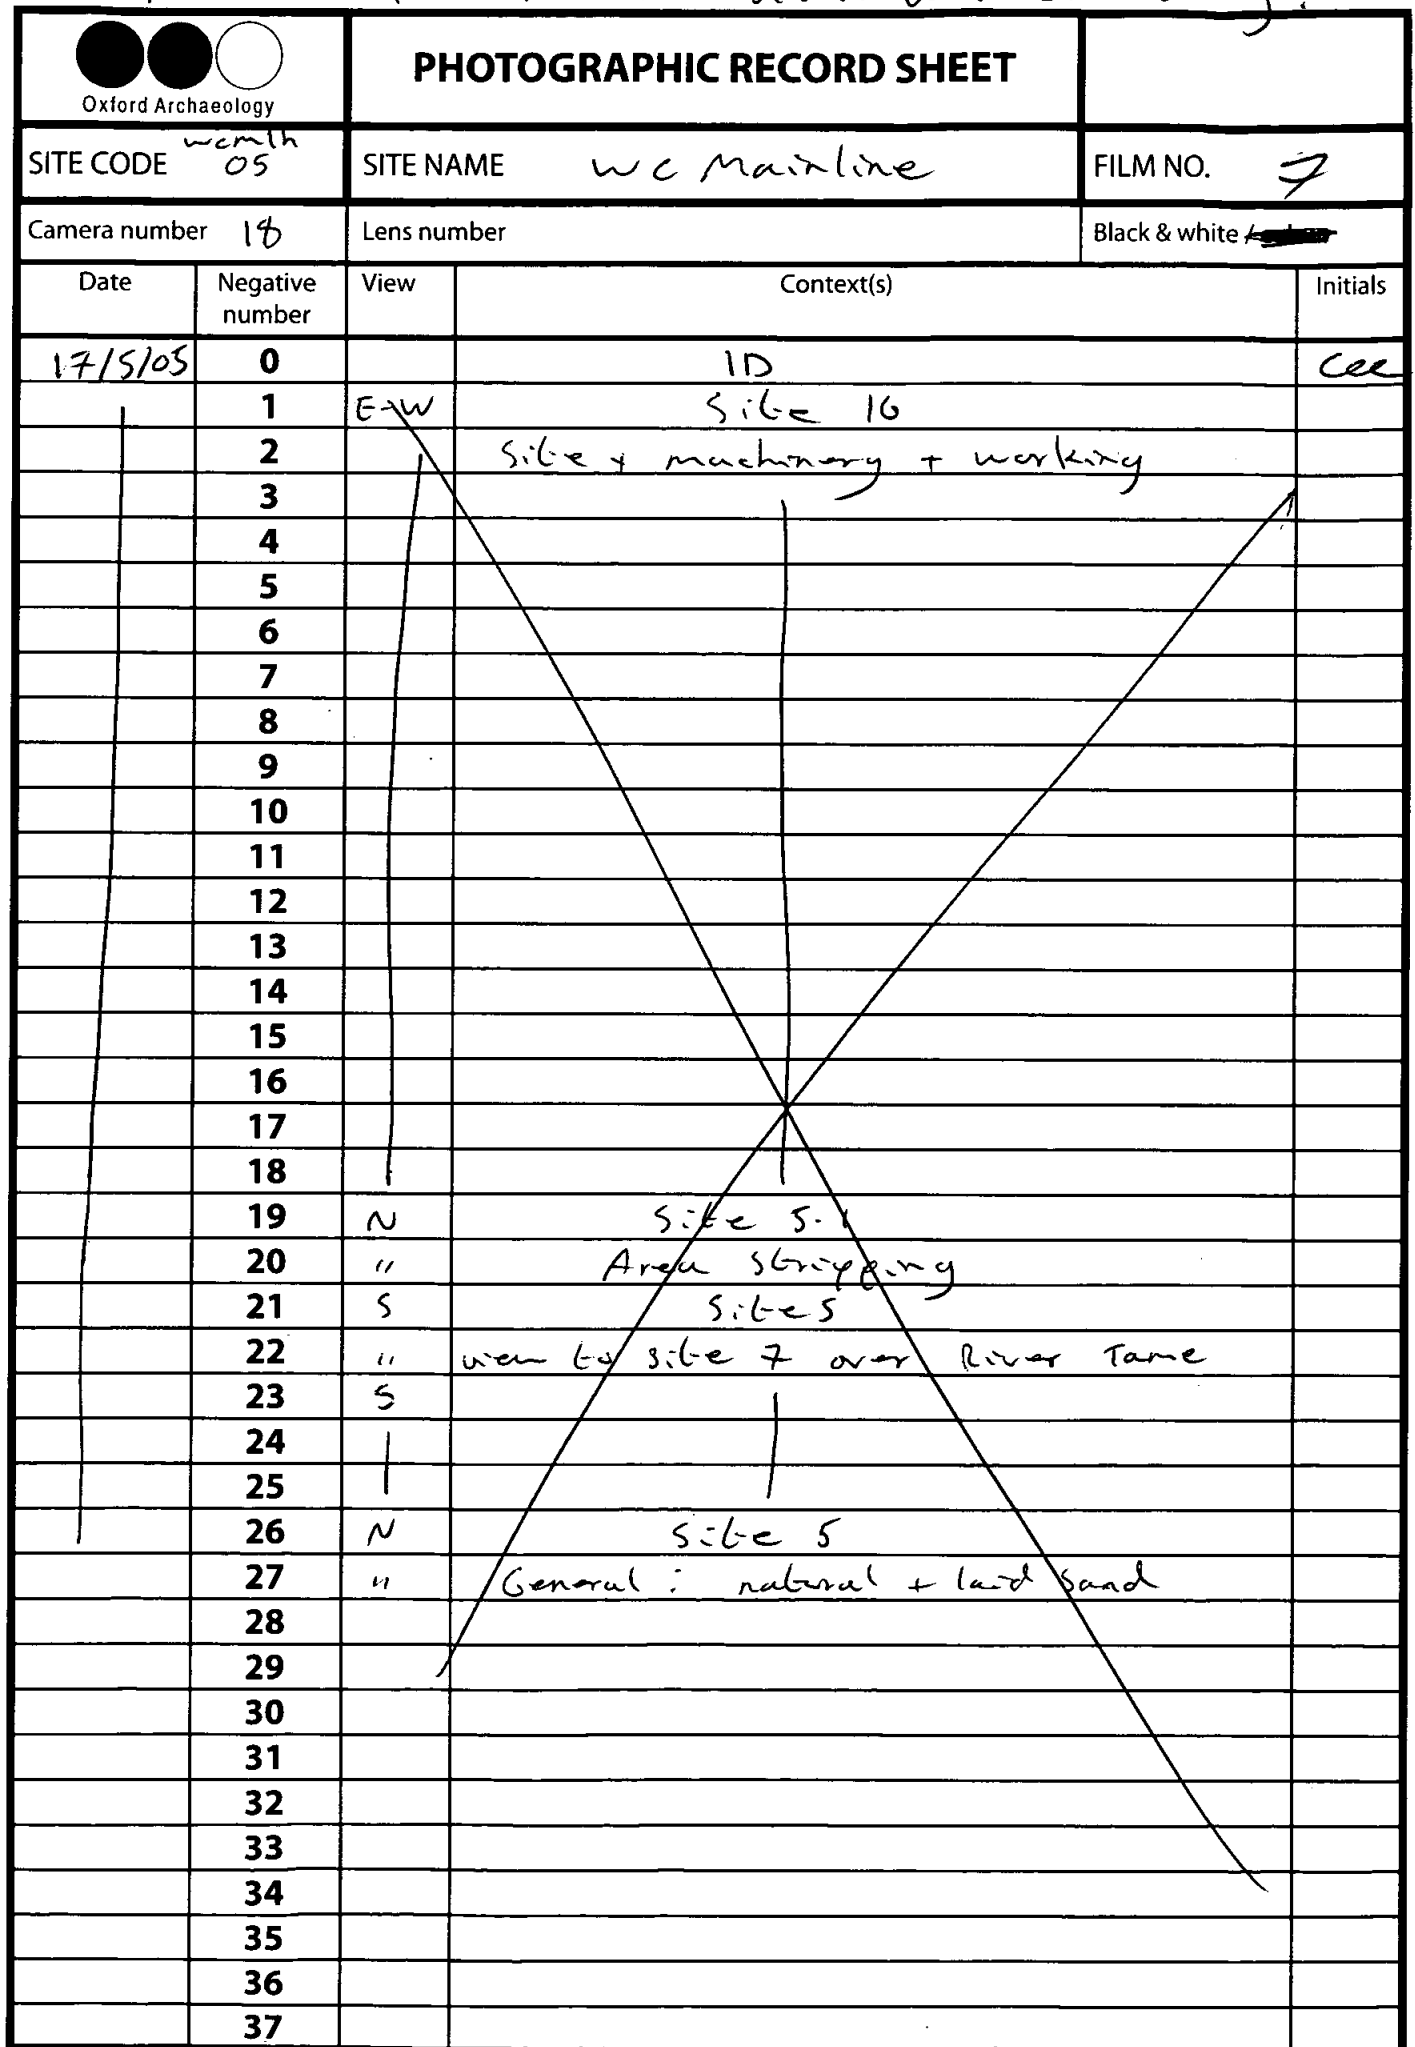 PHOTOGRAPHIC RECORD SHEET
Oxford Archaeology
SITE CODE wcmlh 05
SITE NAME WC Mainline
FILM NO. 7
Camera number 18
Lens number
Black & white /
Date Negative number View Context(s) Initials
17/5/05 0 ID cee
1 E-W Site 16
2 Site + machinery + working
3
4
5
6
7
8
9
10
11
12
13
14
15
16
17
18
19 N Site 5.1
20 " Area Stripping
21 S Site 5
22 " view to site 7 over River Tame
23 S
24
25
26 N Site 5
27 " General : natural + laid sand
28
29
30
31
32
33
34
35
36
37